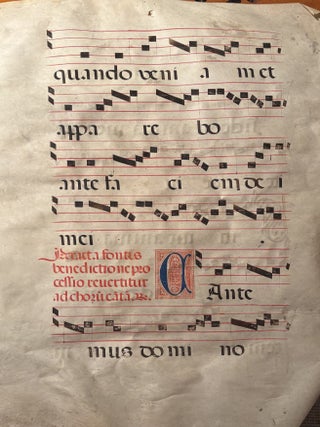 quando veni a m et
appa re bo
ante fa ci em de i
mei
Peracta fontis
benedictione pro
cessio revertitur
ad chorū cātā. tr.
C Ante
mus do mi no